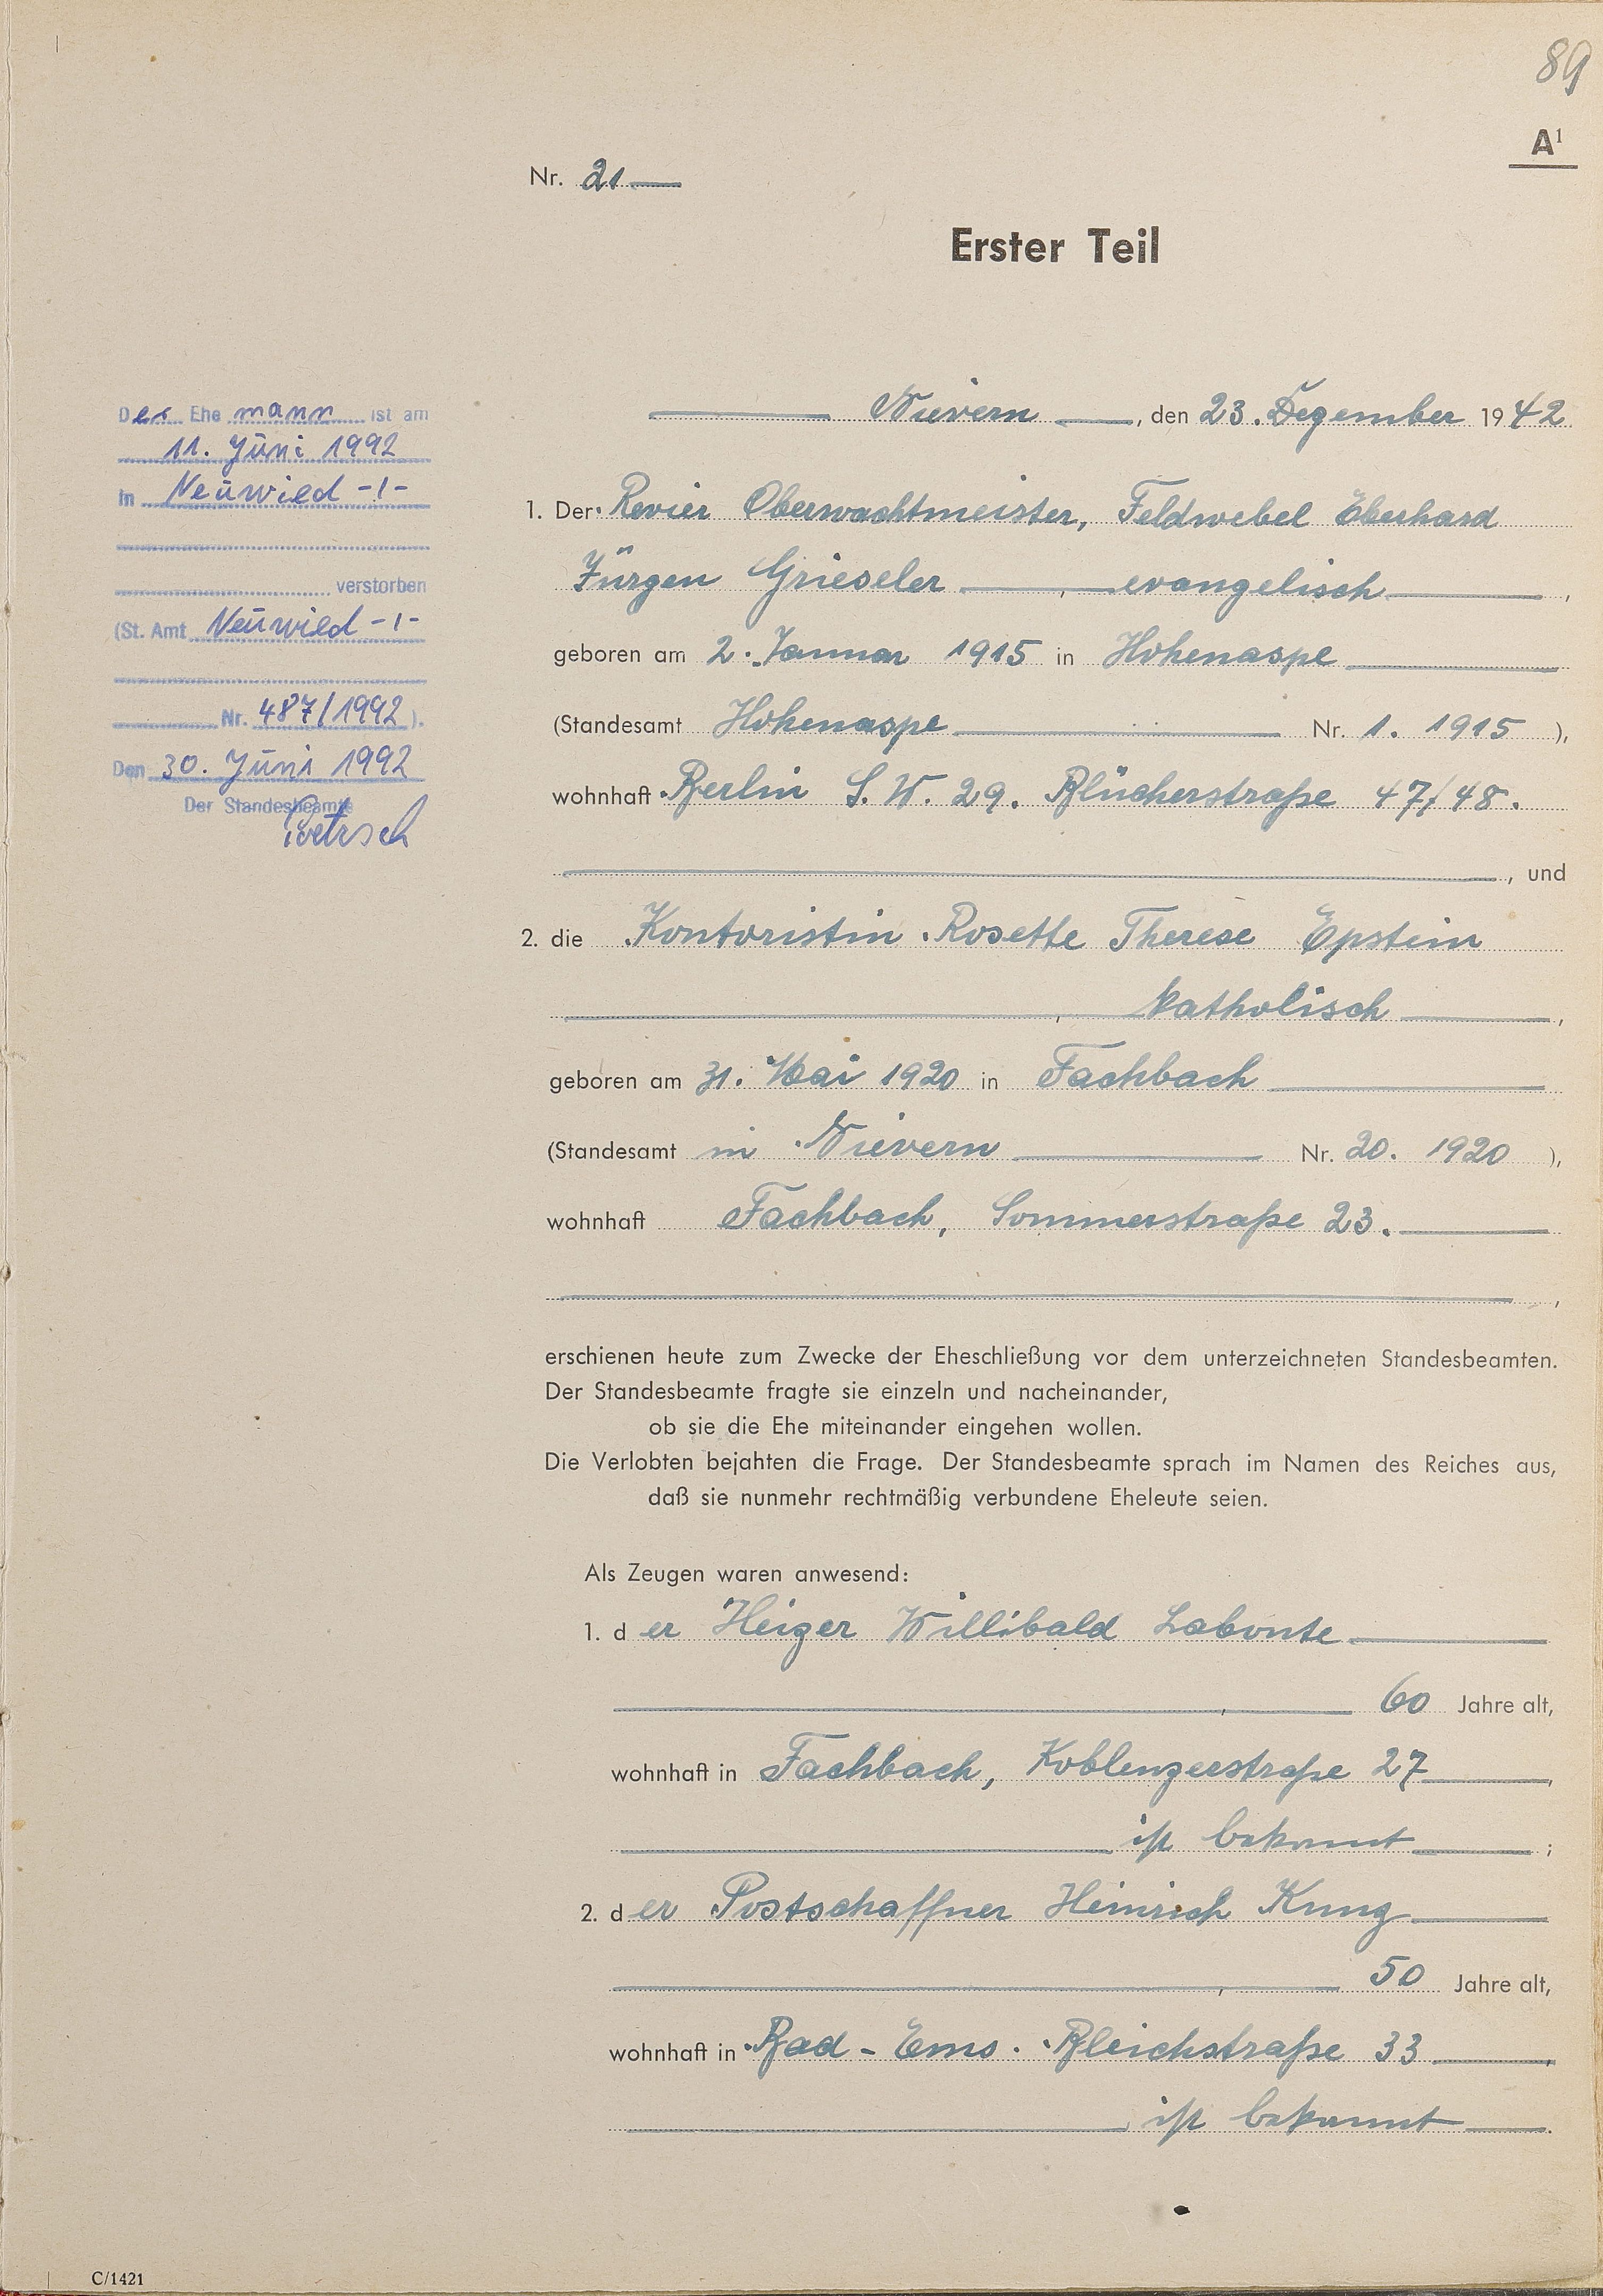 89
A¹
Nr. 21
Erster Teil
Der Ehe mann ist am
11. Juni 1992
in Neuwied -1-
verstorben
(St. Amt Neuwied -1-
Nr. 487/1992 ).
Den 30. Juni 1992
Der Standesbeamte
Nievern, den 23. Dezember 1942
1. Der Revier Oberwachtmeister, Feldwebel Eberhard
Jürgen Grieseler, evangelisch,
geboren am 2. Januar 1915 in Hohenaspe
(Standesamt Hohenaspe Nr. 1. 1915 ),
wohnhaft Berlin S.W. 29. Blücherstraße 47/48.
, und
2. die Kontoristin Rosette Therese Epstein
, katholisch,
geboren am 31. Mai 1920 in Fachbach
(Standesamt in Nievern Nr. 20. 1920 ),
wohnhaft Fachbach, Sommerstraße 23.
,
erschienen heute zum Zwecke der Eheschließung vor dem unterzeichneten Standesbeamten.
Der Standesbeamte fragte sie einzeln und nacheinander,
ob sie die Ehe miteinander eingehen wollen.
Die Verlobten bejahten die Frage. Der Standesbeamte sprach im Namen des Reiches aus,
daß sie nunmehr rechtmäßig verbundene Eheleute seien.
Als Zeugen waren anwesend:
1. der Heizer Willibald Labonte
, 60 Jahre alt,
wohnhaft in Fachbach, Koblenzerstraße 27,
ist bekannt ;
2. der Postschaffner Heinrich Kunz
, 50 Jahre alt,
wohnhaft in Bad-Ems. Bleichstraße 33,
ist bekannt.
C/1421